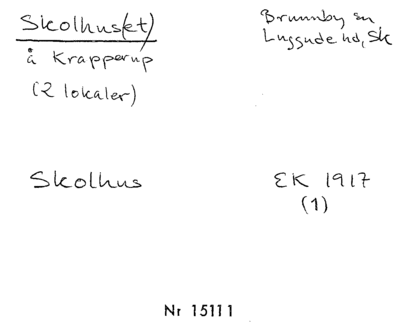 Skolhus(et)
å Krapperup
(2 lokaler)
Brunnby sn
Luggude hd, Sk
Skolhus
EK 1917
(1)
Nr 15111